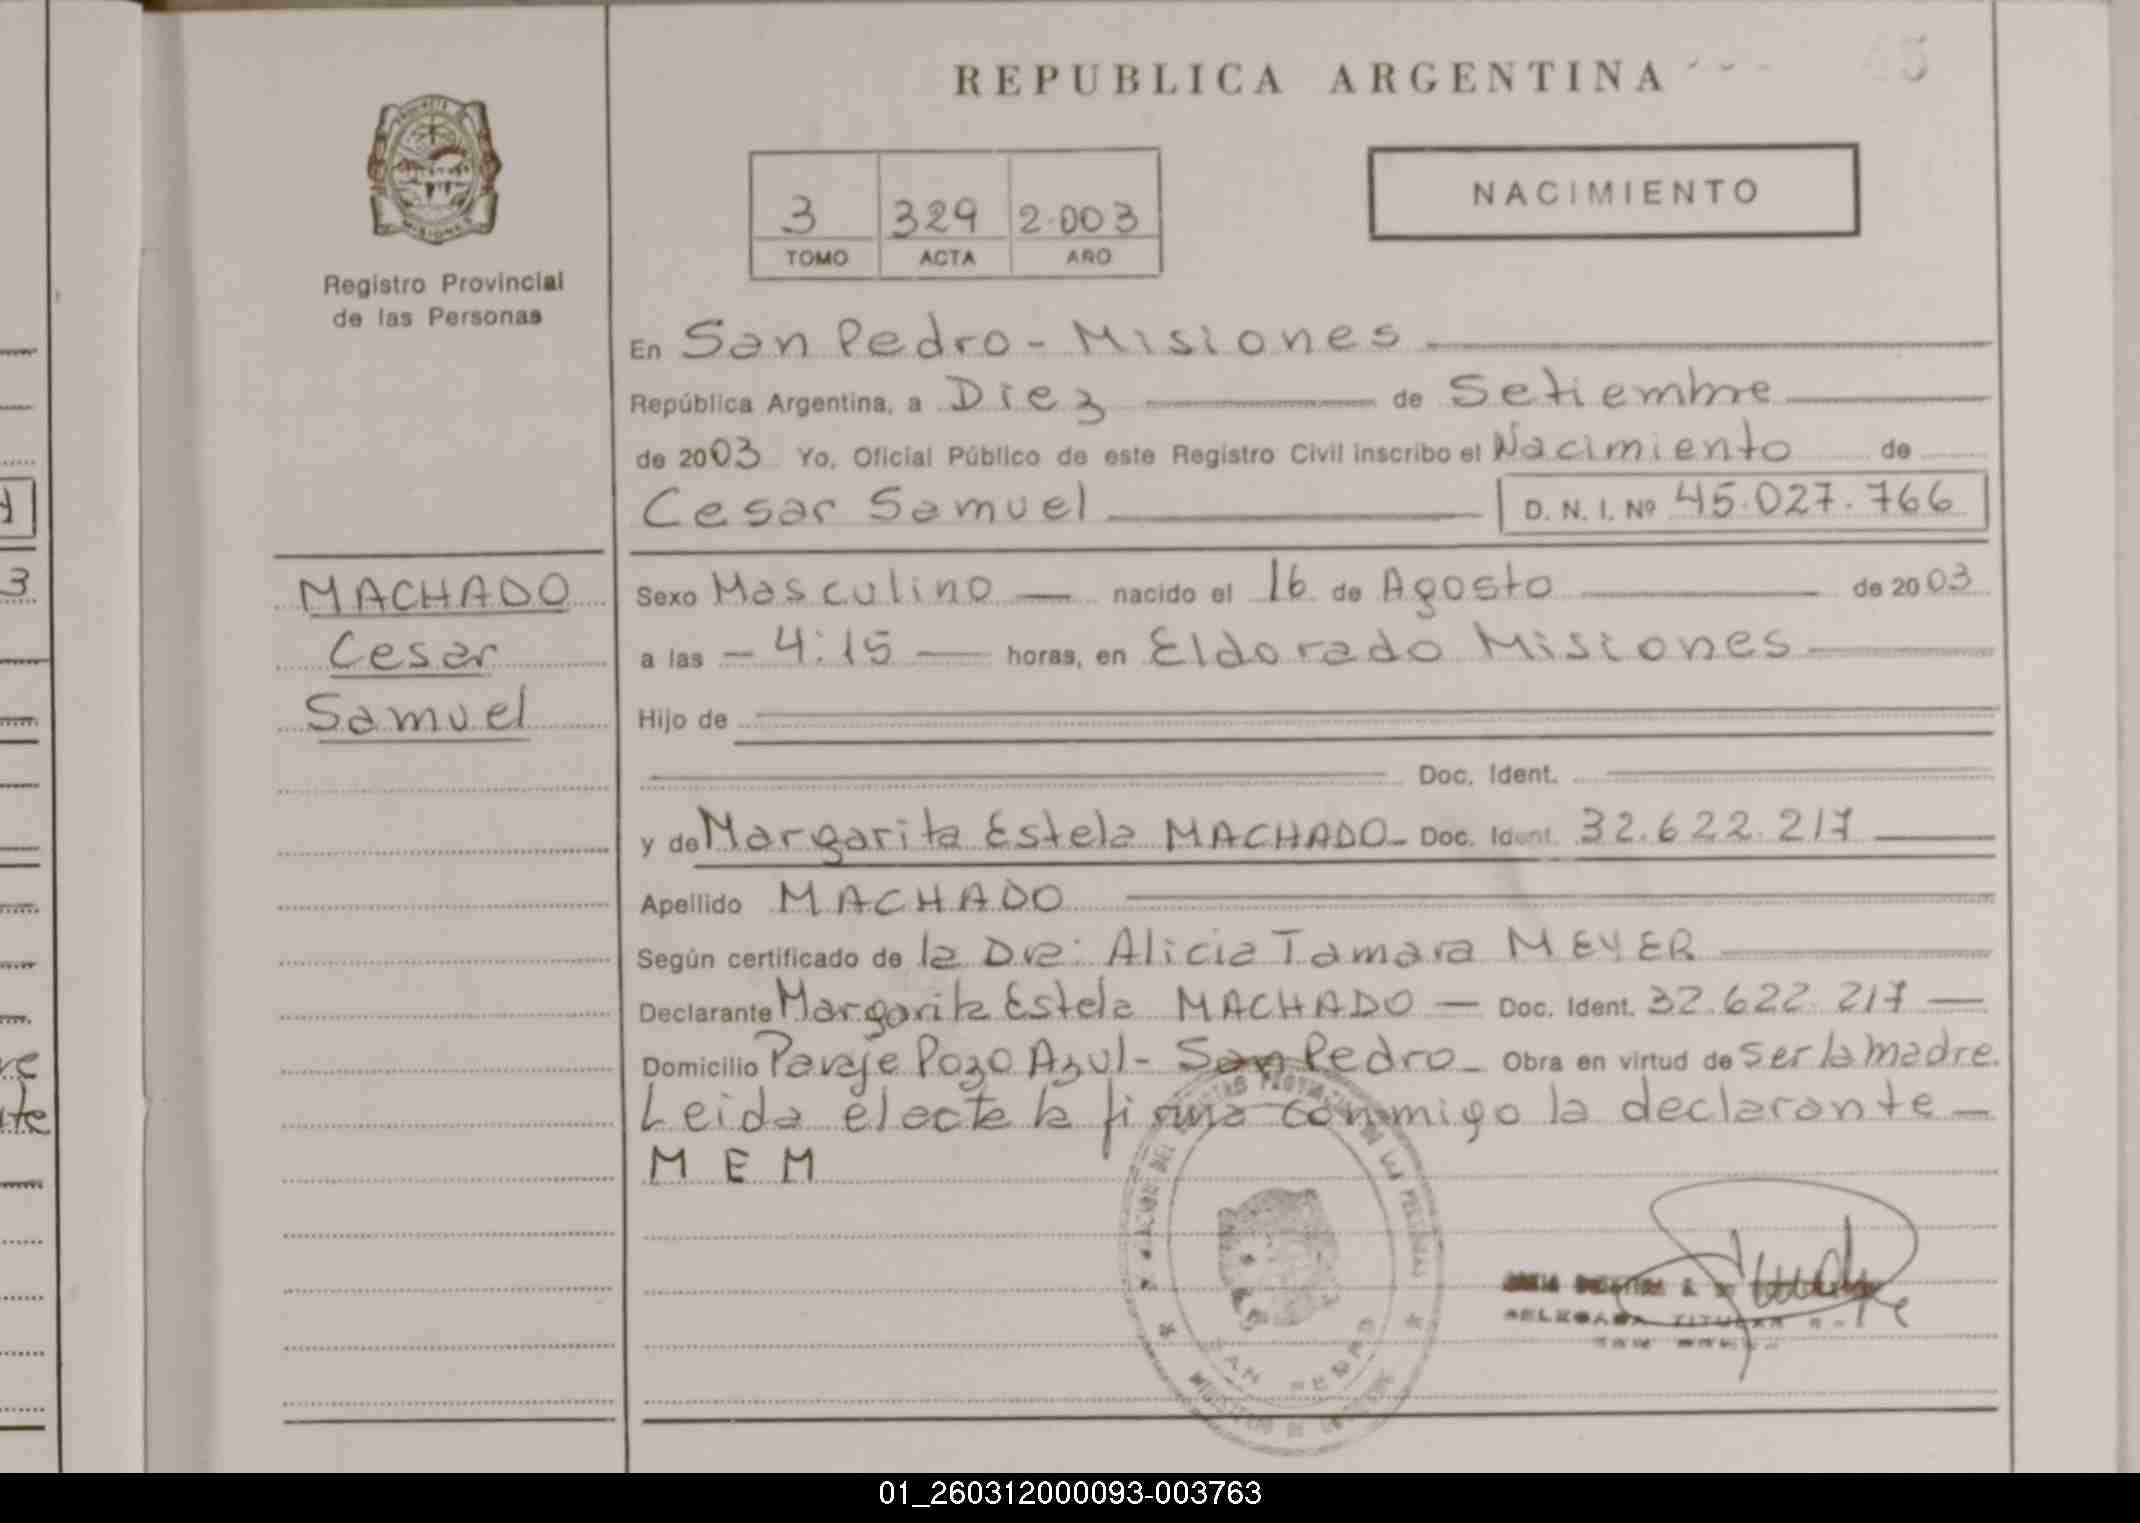 REPUBLICA ARGENTINA
45
3 329 2.003
TOMO ACTA AÑO
NACIMIENTO
Registro Provincial
de las Personas
En San Pedro - Misiones
República Argentina, a Diez de Setiembre
de 2003 Yo, Oficial Público de este Registro Civil inscribo el Nacimiento de
Cesar Samuel D. N. I. Nº 45.027.766
MACHADO
Cesar
Samuel
Sexo Masculino nacido el 16 de Agosto de 2003
a las - 4:15 - horas, en Eldorado Misiones
Hijo de
Doc. Ident.
y de Margarita Estela MACHADO - Doc. Ident. 32.622.217
Apellido MACHADO
Según certificado de la Dra: Alicia Tamara MEYER
Declarante Margarita Estela MACHADO - Doc. Ident. 32.622.217 -
Domicilio Paraje Pozo Azul - San Pedro - Obra en virtud de ser la madre.
Leida el acta la firma conmigo la declarante -
M E M
SAN PEDRO
DELEGADA TITULAR
01_260312000093-003763